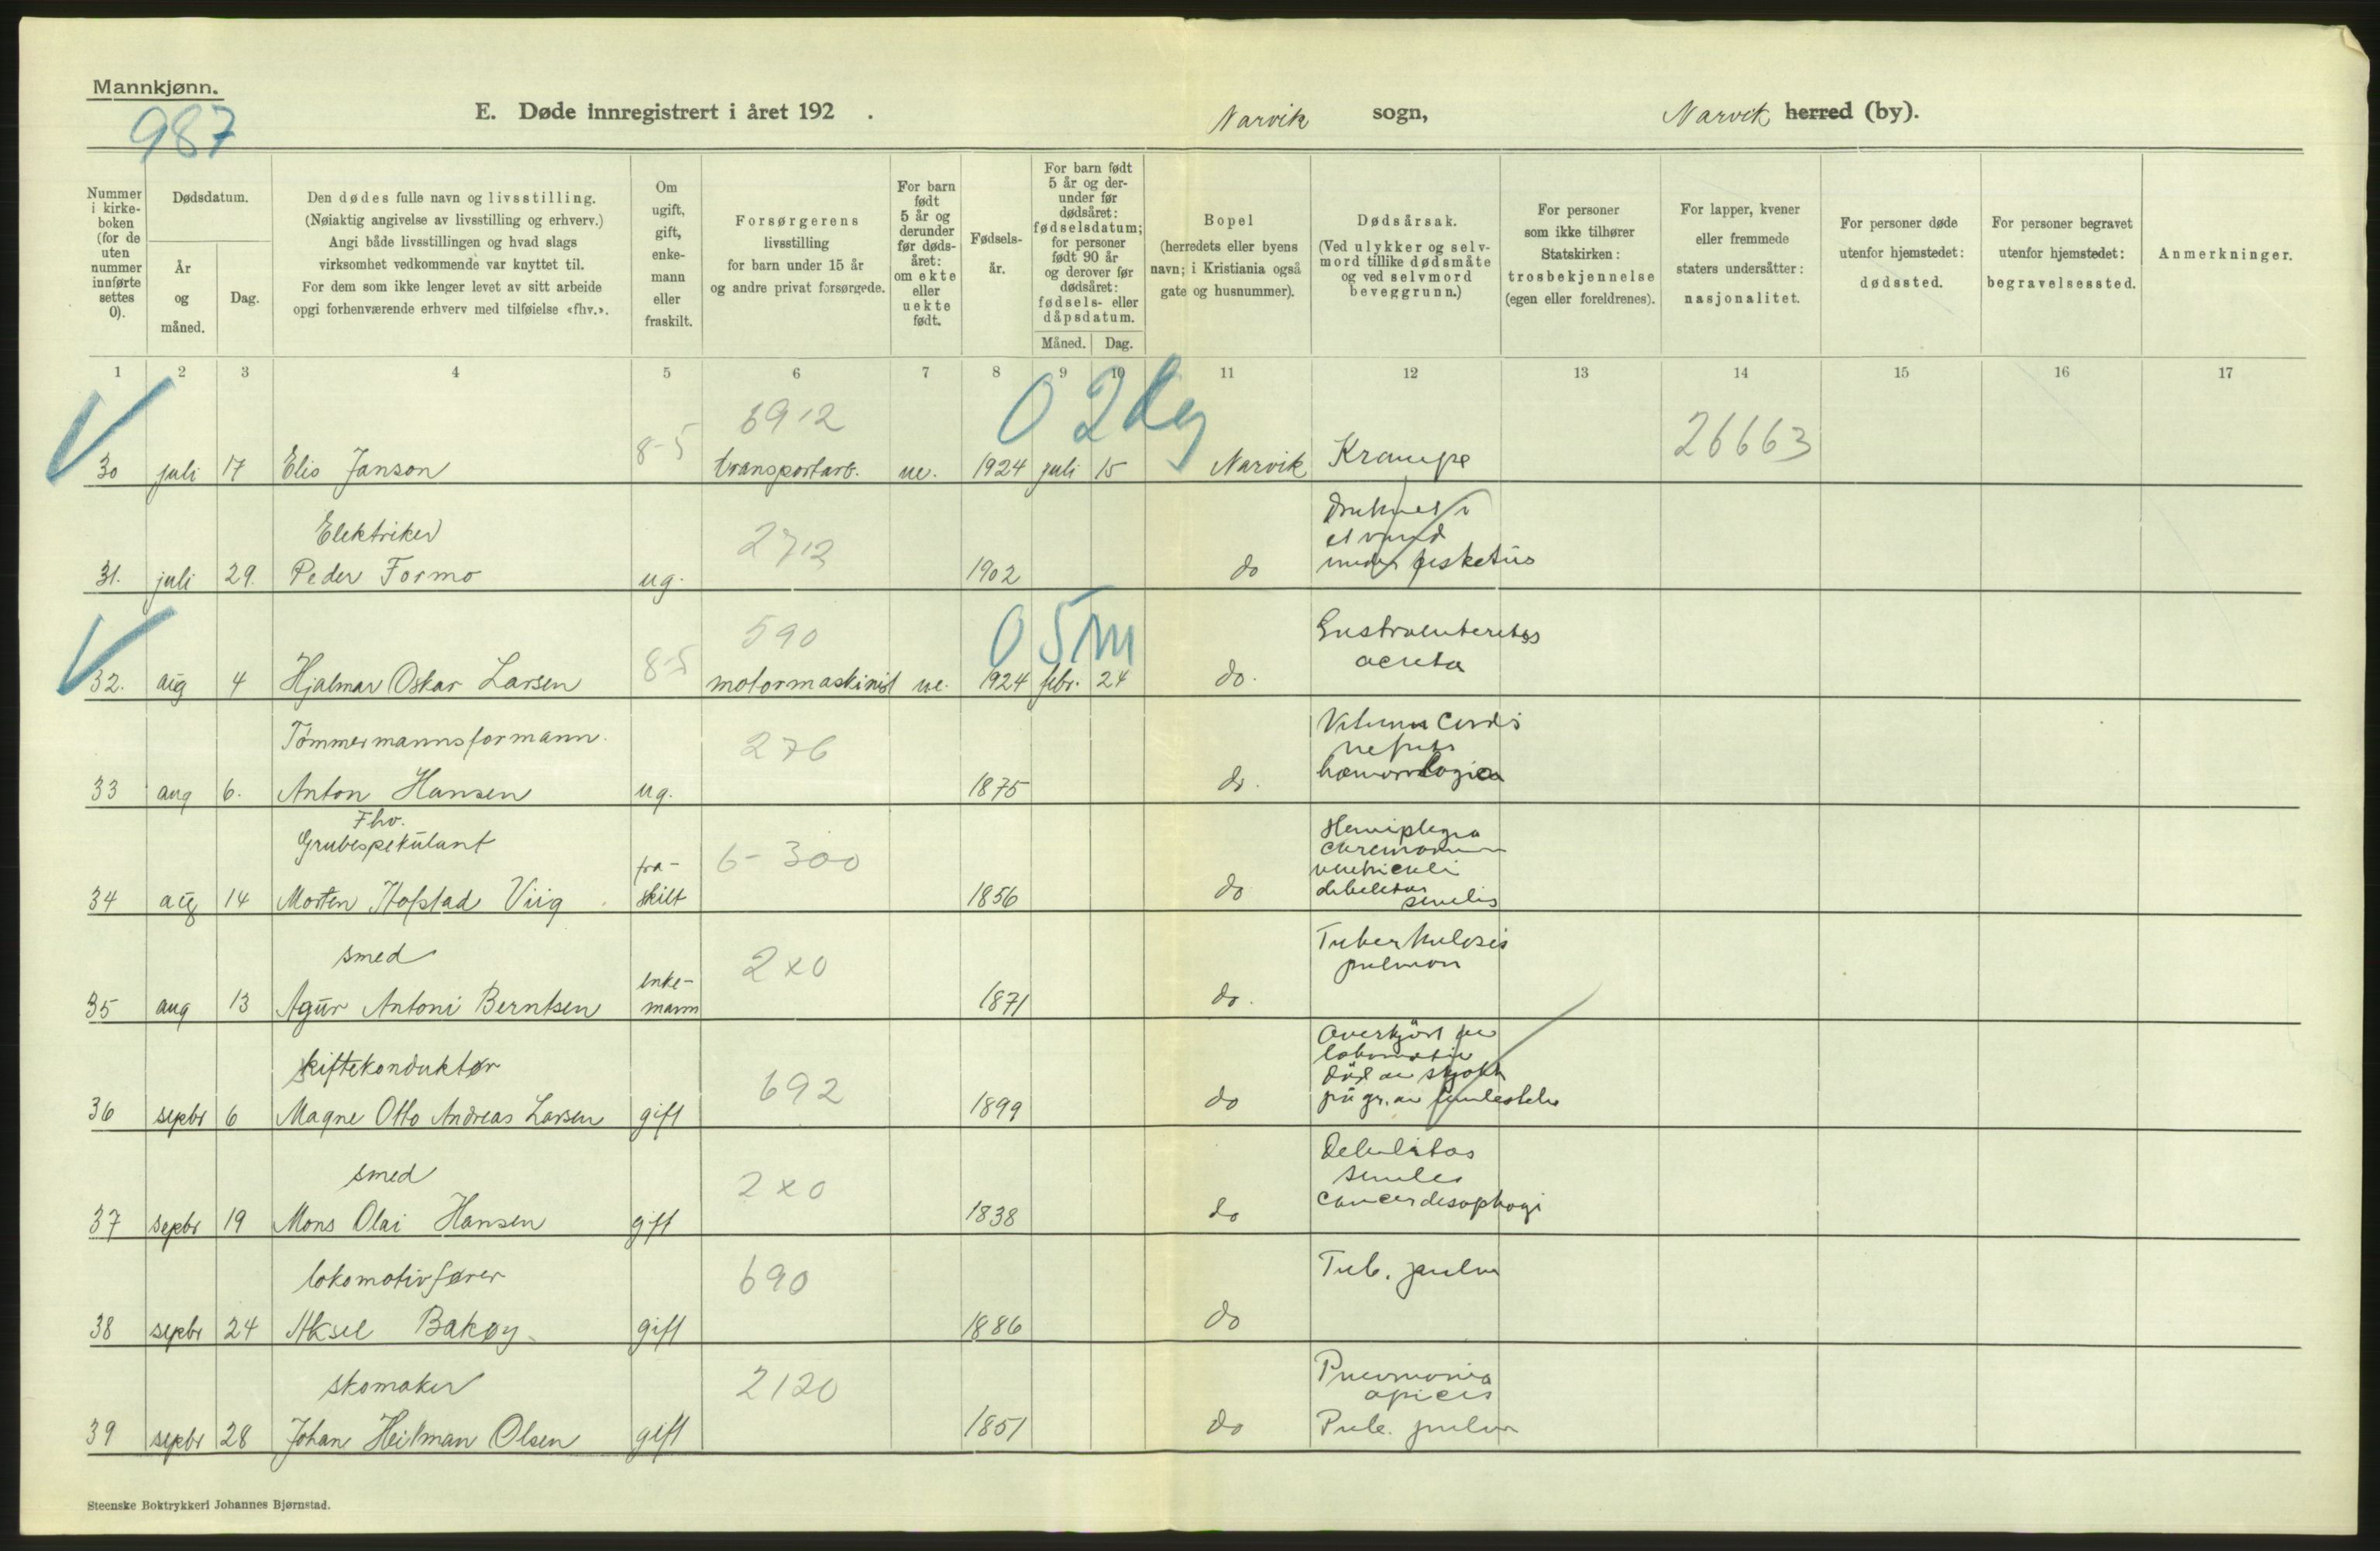 Mannkjønn.
987
E. Døde innregistrert i året 192 .
Narvik sogn,
Narvik herred (by).
Nummer i kirke-boken (for de uten nummer innførte settes 0).
Dødsdatum.
År og måned.
Dag.
Den dødes fulle navn og livsstilling.
(Nøiaktig angivelse av livsstilling og erhverv.)
Angi både livsstillingen og hvad slags
virksomhet vedkommende var knyttet til.
For dem som ikke lenger levet av sitt arbeide
opgi forhenværende erhverv med tilføielse «fhv.».
Om ugift, gift, enke-mann eller fraskilt.
Forsørgerens
livsstilling
for barn under 15 år
og andre privat forsørgede.
For barn født 5 år og derunder før døds-året: om ekte eller uekte født.
Fødsels-år.
For barn født 5 år og der-under før dødsåret: fødselsdatum; for personer født 90 år og derover før dødsåret: fødsels- eller dåpsdatum.
Måned.
Dag.
Bopel
(herredets eller byens
navn; i Kristiania også
gate og husnummer).
Dødsårsak.
(Ved ulykker og selv-
mord tillike dødsmåte
og ved selvmord
beveggrunn.)
For personer
som ikke tilhører
Statskirken:
trosbekjennelse
(egen eller foreldrenes).
For lapper, kvener
eller fremmede
staters undersåtter:
nasjonalitet.
For personer døde
utenfor hjemstedet:
dødssted.
For personer begravet
utenfor hjemstedet:
begravelsessted.
Anmerkninger.
1 2 3 4 5 6 7 8 9 10 11 12 13 14 15 16 17
6912 0 2 dg 26663
8-5
30 juli 17 Elis Janson transportarb. ue. 1924 juli 15 Narvik Krampe
Elektriker 2712 Druknet i
et vand
31. juli 29. Peder Formo ug. 1902 do under fisketur
590 0 5 m Gastroenteritis
8-5 acuta
32. aug 4 Hjalmar Oskar Larsen motormaskinist ue. 1924 febr. 24 do.
Tömmermannsformann 276 Vitium Cordis
33 aug 6. Anton Hansen ug. 1875 do. hæmorrhagica
Fhv.
Grubespekulant 6-300 Hemiplegia
ventriculi
34 aug 14 Morten Hofstad Viig fra-skilt 1856 do debilitas senilis
smed 2x0 Tuberkulosis
pulmon
35 aug 13 Agur Antoni Berntsen enke-mann 1871 do.
skiftekonduktør 692 Overkjørt av
lokomotiv
Död av sjokk
36 sepbr 6 Magne Otto Andreas Larsen gift 1899 do på gr. av
smed 2x0 Debilitas
senilis
37 sepbr 19 Mons Olai Hansen gift 1838 do Cancer øsophagi
lokomotivfører 690 Tub. pulm
38 sepbr 24 Aksel Bakøy gift 1886 do
skomaker 2120 Pneumonia
apicis
39 sepbr 28 Johan Heilman Olsen gift 1851 do Tub. pulm
Steenske Boktrykkeri Johannes Bjørnstad.